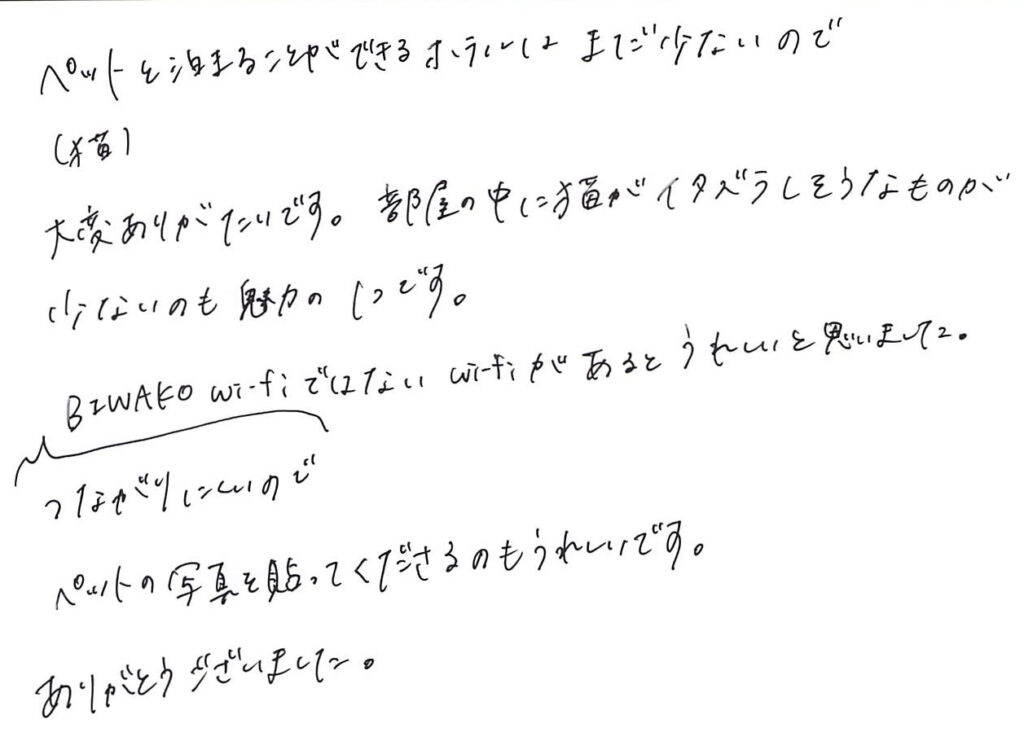 ペットと泊まることができるホテルは まだ少ないので
(猫)
大変ありがたいです。部屋の中に猫がイタズラしそうなものが
少ないのも魅力の1つです。
BIWAKO wi-fiではない wi-fiがあるとうれしいと思いました。
つながりにくいので
ペットの写真を貼ってくださるのもうれしいです。
ありがとうございました。